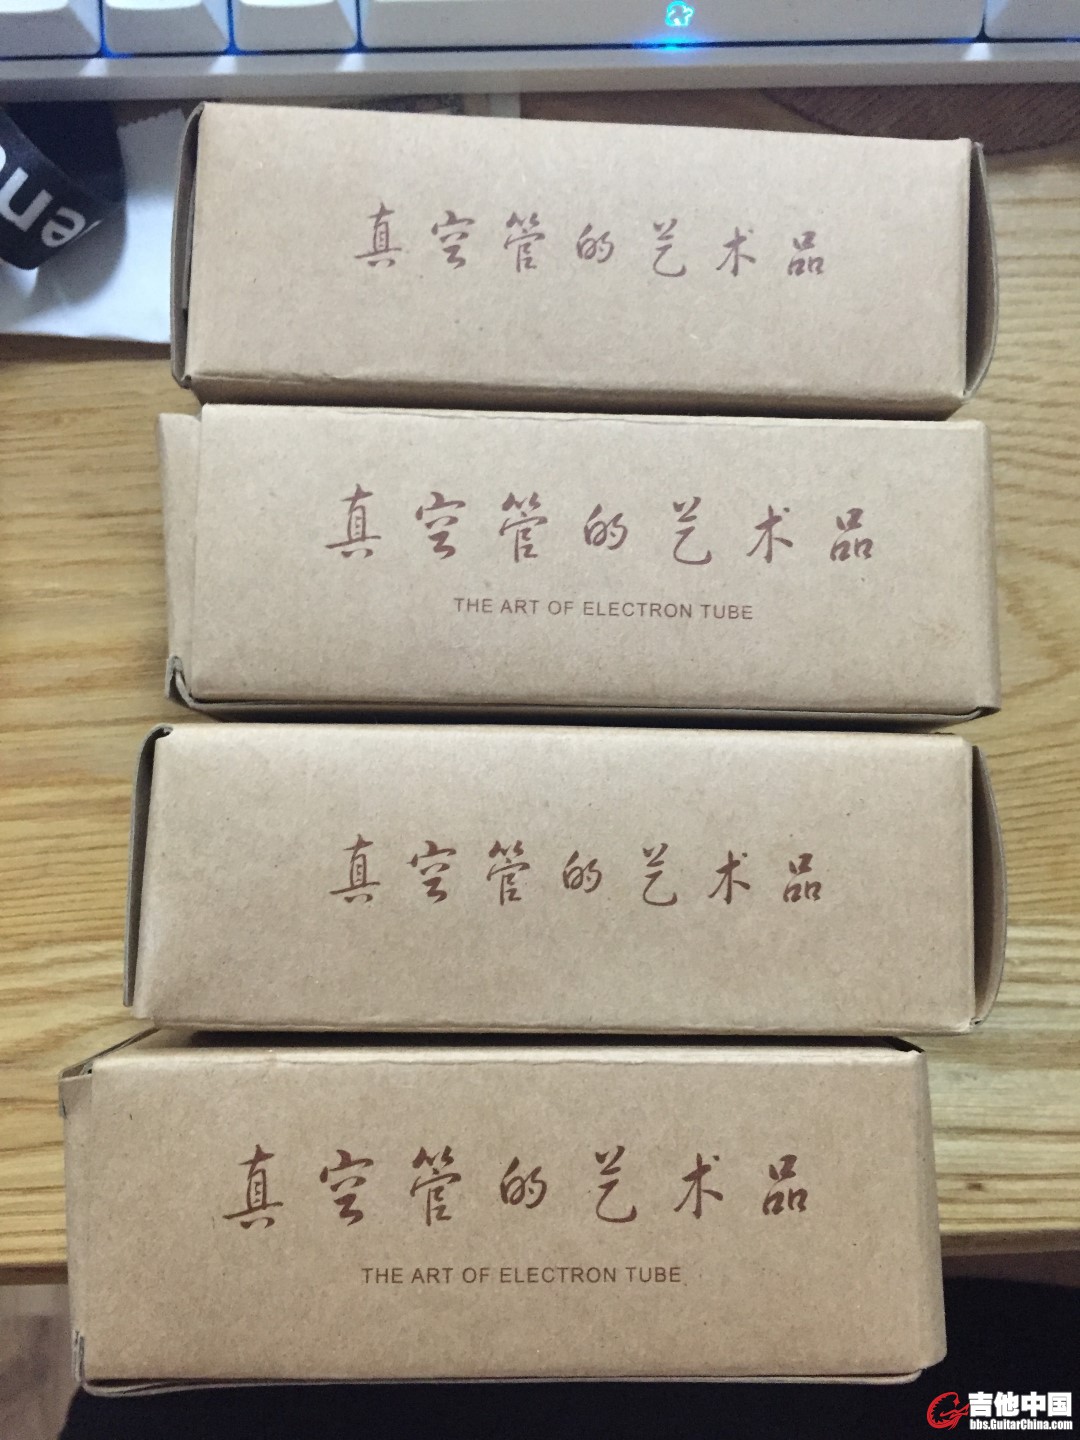 真空管的艺术品
真空管的艺术品
THE ART OF ELECTRON TUBE
真空管的艺术品
真空管的艺术品
THE ART OF ELECTRON TUBE
吉他中国
bbs.GuitarChina.com